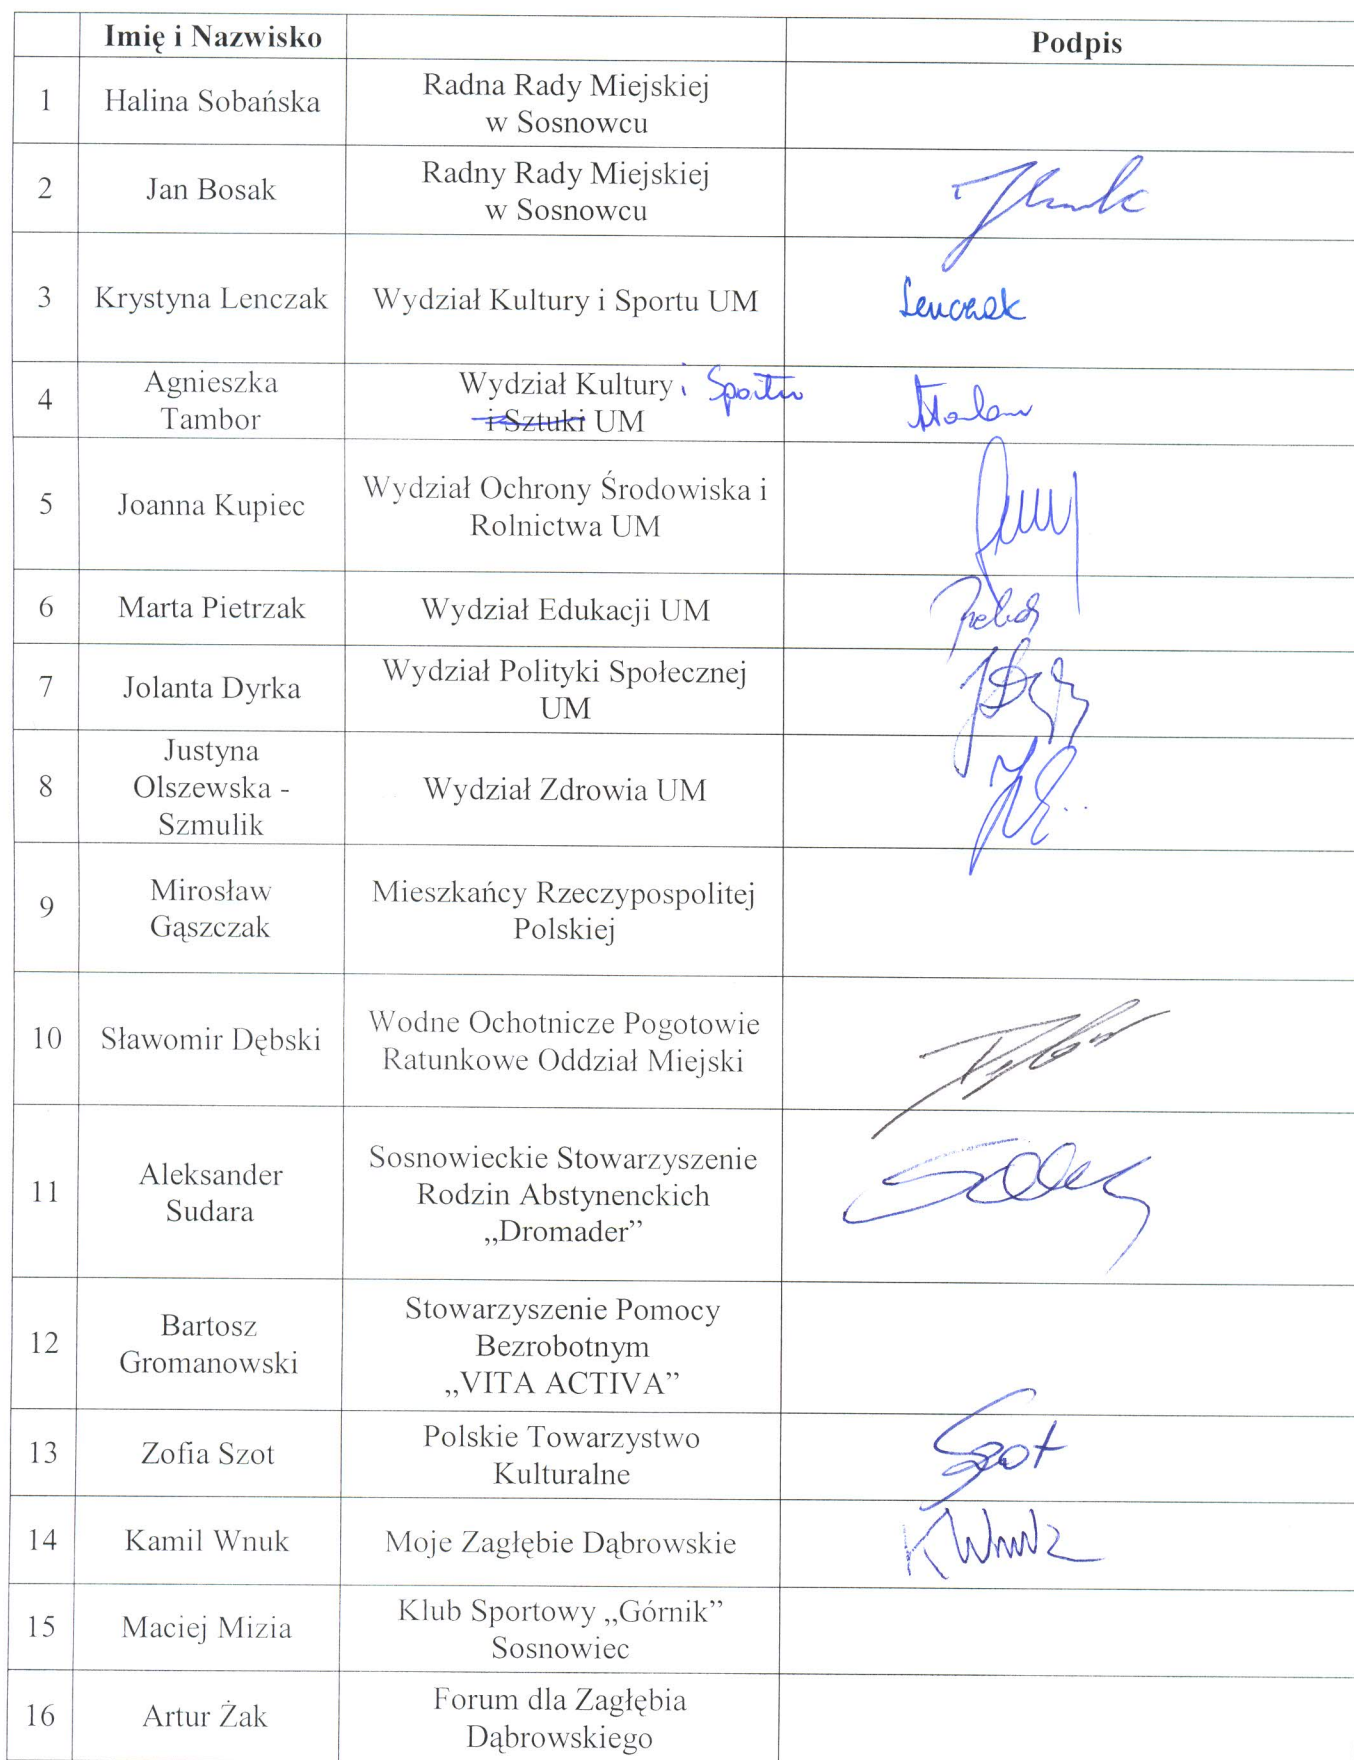 Imię i Nazwisko
Podpis
1
Halina Sobańska
Radna Rady Miejskiej
w Sosnowcu
2
Jan Bosak
Radny Rady Miejskiej
w Sosnowcu
3
Krystyna Lenczak
Wydział Kultury i Sportu UM
Lenczak
4
Agnieszka
Tambor
Wydział Kultury i Sportu
i Sztuki UM
5
Joanna Kupiec
Wydział Ochrony Środowiska i
Rolnictwa UM
6
Marta Pietrzak
Wydział Edukacji UM
7
Jolanta Dyrka
Wydział Polityki Społecznej
UM
8
Justyna
Olszewska -
Szmulik
Wydział Zdrowia UM
9
Mirosław
Gąszczak
Mieszkańcy Rzeczypospolitej
Polskiej
10
Sławomir Dębski
Wodne Ochotnicze Pogotowie
Ratunkowe Oddział Miejski
11
Aleksander
Sudara
Sosnowieckie Stowarzyszenie
Rodzin Abstynenckich
„Dromader”
12
Bartosz
Gromanowski
Stowarzyszenie Pomocy
Bezrobotnym
„VITA ACTIVA”
13
Zofia Szot
Polskie Towarzystwo
Kulturalne
Szot
14
Kamil Wnuk
Moje Zagłębie Dąbrowskie
K Wnuk
15
Maciej Mizia
Klub Sportowy „Górnik”
Sosnowiec
16
Artur Żak
Forum dla Zagłębia
Dąbrowskiego